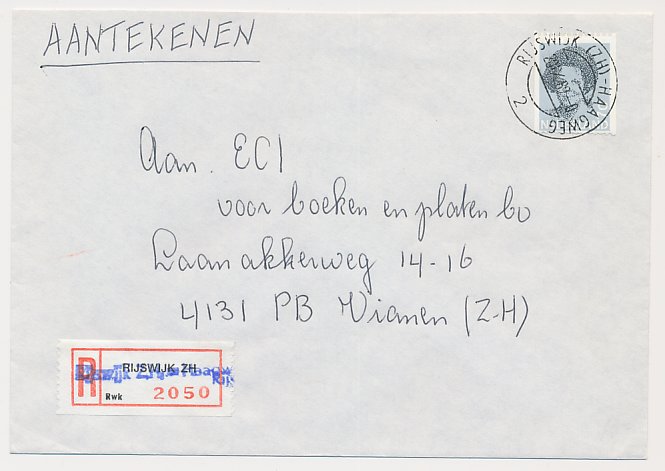 AANTEKENEN
RIJSWIJK (ZH)-HAAGWEG
2
Aan. ECI
voor boeken en platen bv
Laanakkerweg 14-16
4131 PB Vianen (Z-H)
R
RIJSWIJK ZH
Rwk 2050